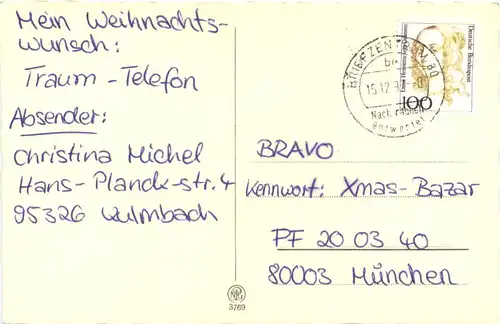 Mein Weihnachts-
wunsch:
Traum-Telefon
Absender:
Christina Michel
Hans-Planck-str. 4
95326 Kulmbach
3769
Deutsche Bundespost
100
BRIEFZENTRUM 80
15.12.
Nachträglich
entwertet
BRAVO
Kennwort: Xmas-Bazar
PF 20 03 40
80003 München